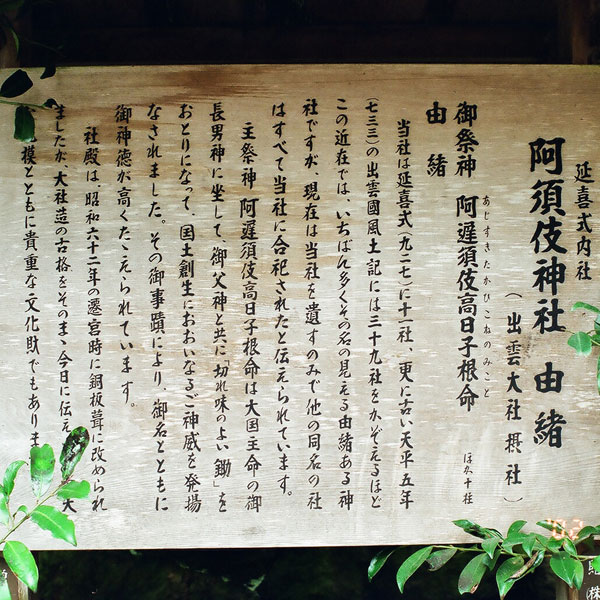 延喜式内社
阿須伎神社 由緒
(出雲大社摂社)
あじすきたかひこねのみこと
御祭神 阿遲須伎高日子根命 ほか十柱
由緒
当社は延喜式(九二七)に十一社、更に古い天平五年
(七三三)の出雲國風土記には三十九社をかぞえるほど
この近在では、いちばん多くその名の見える由緒ある神
社ですが、現在は当社を遺すのみで他の同名の社
はすべて当社に合祀されたと伝えられています。
主祭神 阿遲須伎高日子根命は大国主命の御
長男神に坐して、御父神と共に「切れ味のよい鋤」を
おとりになって、国土創生におおいなるご神威を発揚
なされました。その御事蹟により、御名とともに
御神徳が高くたゝえられています。
社殿は、昭和六十二年の遷宮時に銅板葺に改められ
ましたが、大社造の古格をそのまゝ今日に伝え 大
模とともに貴重な文化財でもありま